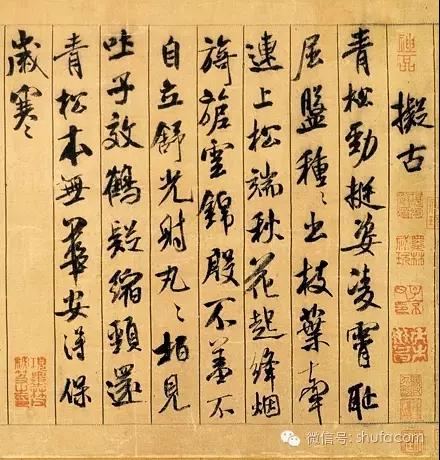 擬古
青松勁挺姿凌霄耻
屈盤種〻出枝葉牽
連上松端秋花起絳烟
旖旎雲錦殷不羞不
自立舒光射丸〻柏見
吐子效鶴疑縮頸還
青松本無華安得保
歲寒〻
神品
微信号: shufacom